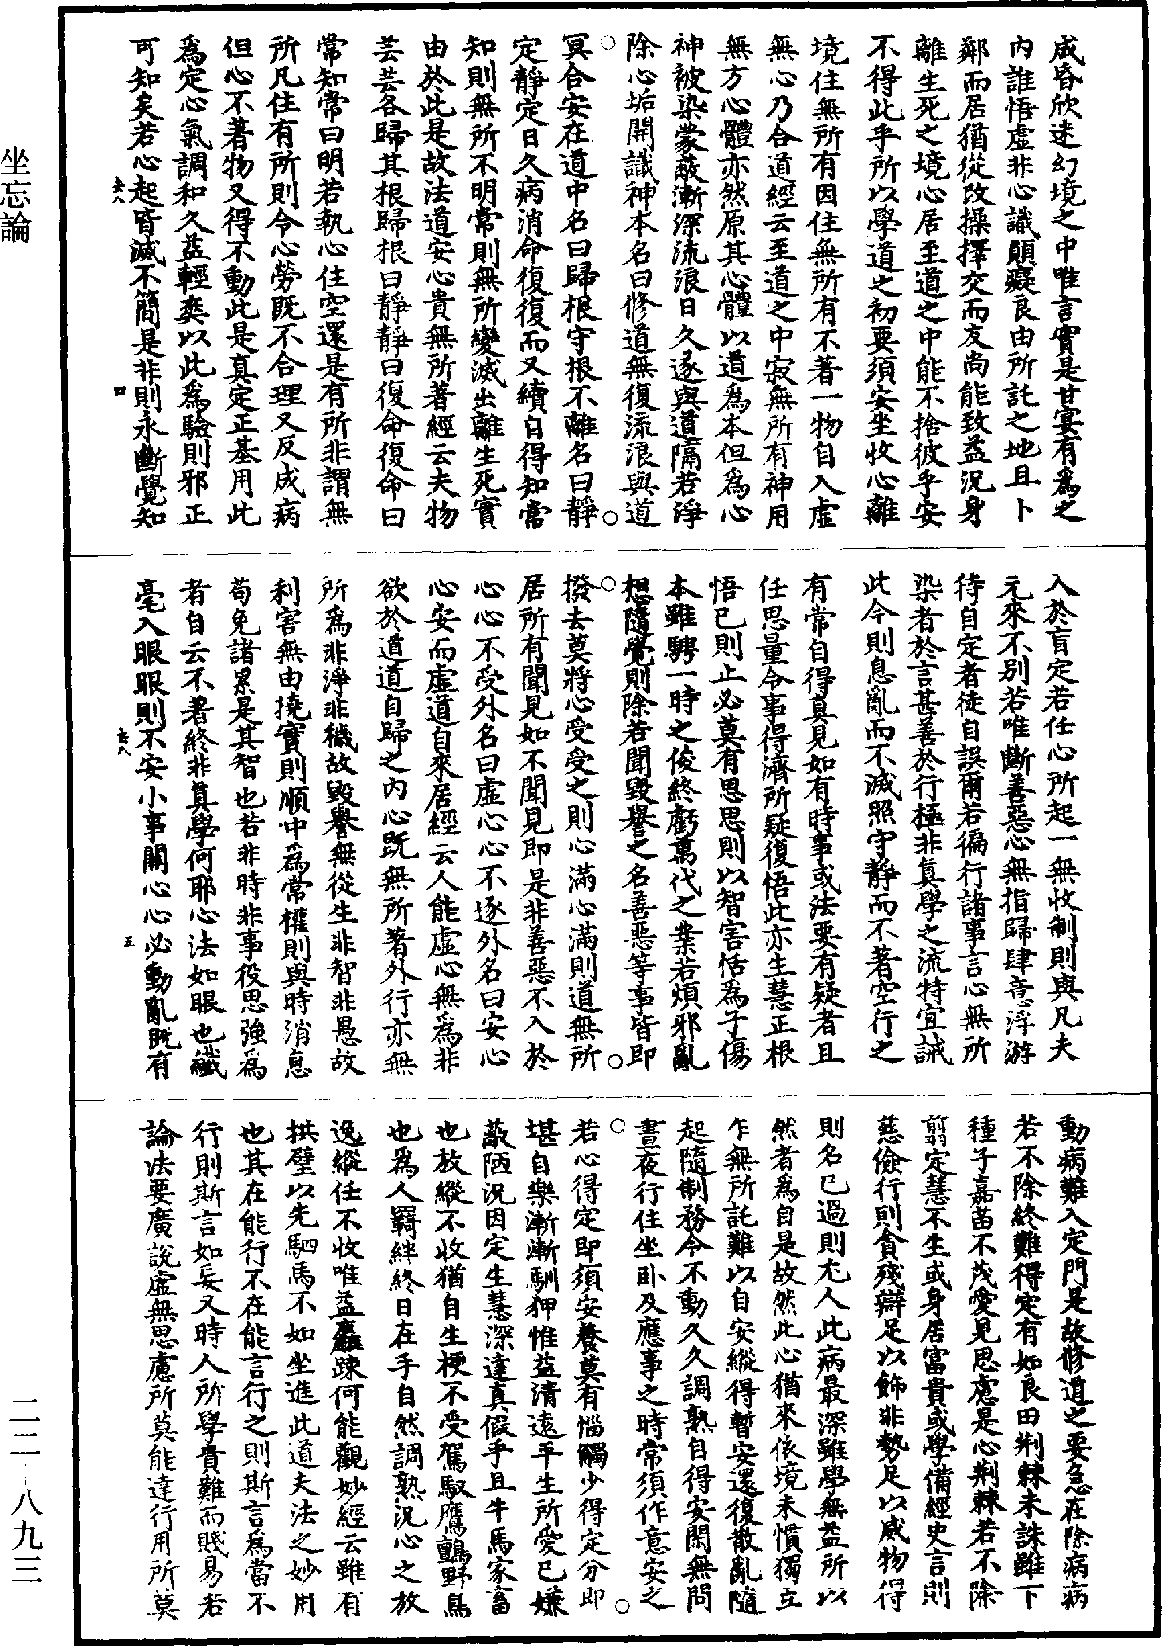 坐忘論
成昏欣迷幻境之中唯言實是甘宴有爲之
內誰悟虛非心識顛癡良由所託之地且卜
鄰而居猶從改操擇交而友尚能致益況身
離生死之境心居至道之中能不捨彼乎安
不得此乎所以學道之初要須安坐收心離
境住無所有因住無所有不著一物自入虛
無心乃合道經云至道之中寂無所有神用
無方心體亦然原其心體以道爲本但爲心
神被染蒙蔽漸深流浪日久遂與道隔若淨
除心垢開識神本名曰修道無復流浪與道
冥合安在道中名曰歸根守根不離名曰靜
定靜定日久病消命復復而又續自得知常
知則無所不明常則無所變滅出離生死實
由於此是故法道安心貴無所著經云夫物
芸芸各歸其根歸根曰靜靜曰復命復命曰
常知常曰明若執心住空還是有所非謂無
所凡住有所則令心勞旣不合理又反成病
但心不著物又得不動此是真定正基用此
爲定心氣調和久益輕爽以此爲驗則邪正
可知矣若心起皆滅不簡是非則永斷覺知
去八
四
入於盲定若任心所起一無收制則與凡夫
元來不別若唯斷善惡心無指歸肆意浮游
待自定者徒自誤爾若徧行諸事言心無所
染者於言甚善於行極非真學之流特宜誡
此今則息亂而不滅照守靜而不著空行之
有常自得真見如有時事或法要有疑者且
任思量令事得濟所疑復悟此亦生慧正根
悟已則止必莫有思思則以智害恬爲子傷
本雖騁一時之俊終虧萬代之業若煩邪亂
想隨覺則除若聞毀譽之名善惡等事皆即
撥去莫將心受受之則心滿心滿則道無所
居所有聞見如不聞見即是非善惡不入於
心心不受外名曰虛心心不逐外名曰安心
心安而虛道自來居經云人能虛心無爲非
欲於道道自歸之內心旣無所著外行亦無
所爲非淨非穢故毀譽無從生非智非愚故
利害無由撓實則順中爲常權則與時消息
苟免諸累是其智也若非時非事役思強爲
者自云不著終非真學何耶心法如眼也纖
毫入眼眼則不安小事關心心必動亂旣有
去八
五
動病難入定門是故修道之要急在除病病
若不除終難得定有如良田荆棘未誅雖下
種子嘉苗不茂愛見思慮是心荆棘若不除
翦定慧不生或身居富貴或學備經史言則
慈儉行則貪殘辯足以飾非勢足以威物得
則名已過則尤人此病最深雖學無益所以
然者爲自是故然此心猶來依境未慣獨立
乍無所託難以自安縱得暫安還復散亂隨
起隨制務令不動久久調熟自得安閑無問
晝夜行住坐卧及應事之時常須作意安之
若心得定即須安養莫有惱觸少得定分即
堪自樂漸漸馴狎惟益清遠平生所愛已嫌
蔽陋況因定生慧深達真假乎且牛馬家畜
也放縱不收猶自生梗不受駕馭鷹鸇野鳥
也爲人羈絆終日在手自然調熟況心之放
逸縱任不收唯益麤踈何能觀妙經云雖有
拱璧以先駟馬不如坐進此道夫法之妙用
也其在能行不在能言行之則斯言爲當不
行則斯言如妄又時人所學貴難而賤易若
論法要廣說虛無思慮所莫能達行用所莫
二二-八九三